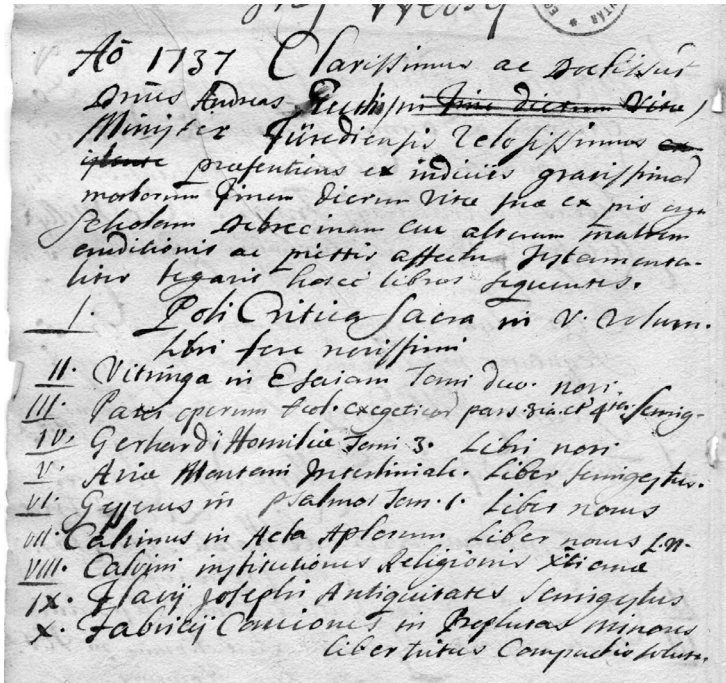 Aõ 1737 Clarissimus ac Doctissus
Dnus Andreas
Minister Fürediensis Zelosissimus ex
istente præsentiens ex indiciis gravissimos
morborum finem dierum vitæ suæ ex pio erga
Scholam Debrecinam ceu alteram matrem
eruditionis ac pietatis affectu Testamenta-
liter legavit hosce libros sequentes.
I. Poli Critica Sacra in V. Volum.
libri fere novissimi
II. Vitringa in Esaiam Tomi duo. novi.
III. operum exegeticos pars 3ia et 4ta Semig-
IV. Gerhardi Homiliæ Tomi 3. Libri novi
V. Ariæ Montani Liber semigestus.
VI. Gesnerus in psalmos Tom. 1. Liber novus
VII. Calvinus in Acta Aplorum Liber novus
VIII. Calvini institutiones Religionis Xtianæ
IX. Flavij Josephi Antiquitates Semigestus
X. Fabricij Conciones in Prophetas minores
liber tritus Compactis solut.